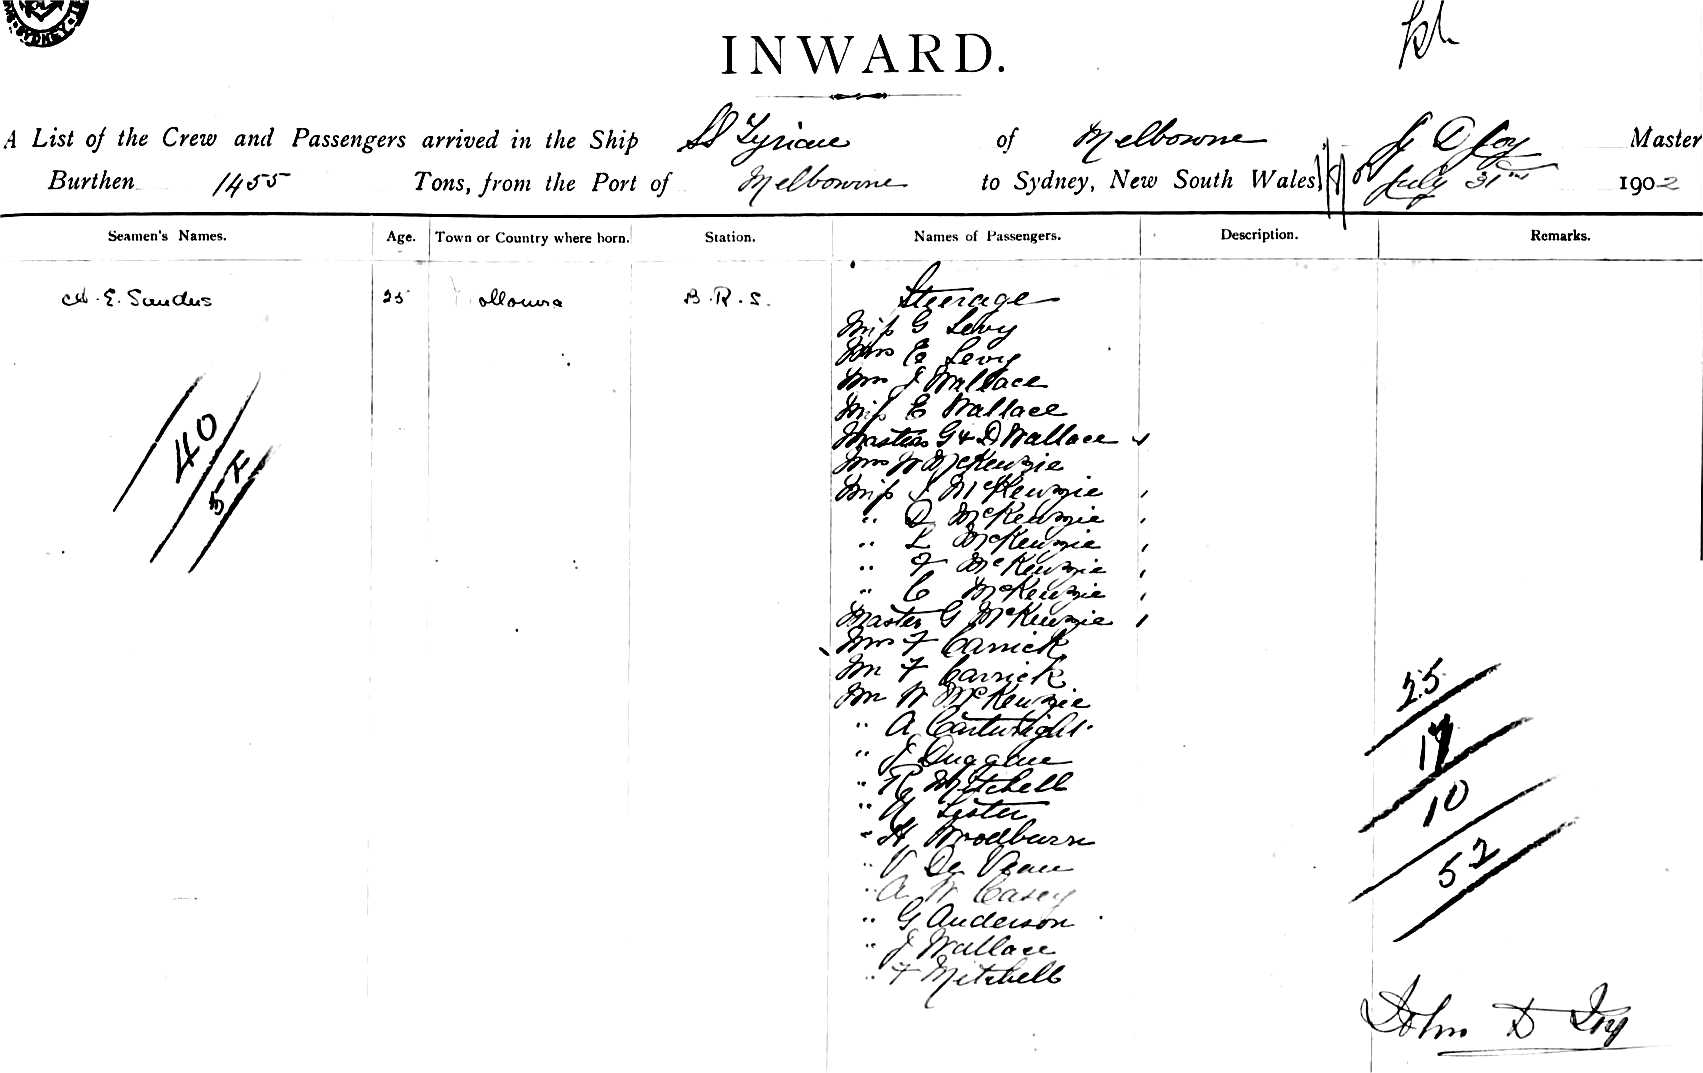 SYDNEY
INWARD.
A List of the Crew and Passengers arrived in the Ship SS Tyrian of Melbourne J D Joy Master
Burthen 1455 Tons, from the Port of Melbourne to Sydney, New South Wales, July 31st 1902
Seamen's Names. Age. Town or Country where born. Station. Names of Passengers. Description. Remarks.
E. Sandus 25 B.R.S. Steerage
Miss G Levy
Mrs E Levy
Mrs J Wallace
Miss E Wallace
Masters G & D Wallace
Mrs W McKenzie
Miss J McKenzie
" D McKenzie
" L McKenzie
" F McKenzie
" C McKenzie
Master G McKenzie
Mrs F Carrick
Mr F Carrick
Mr W McKenzie
" A Cartwright
" J Duggan
" R Mitchell
" Lister
" H Woodburn
" V De Vean
" A W Casey
" G Anderson
" J Wallace
" F Mitchell
40
54
25
17
10
52
John D Joy